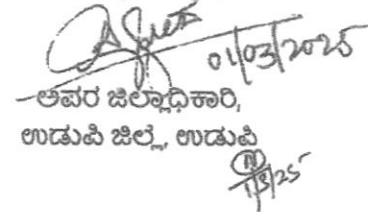 01/03/2025
ಅಪರ ಜಿಲ್ಲಾಧಿಕಾರಿ,
ಉಡುಪಿ ಜಿಲ್ಲೆ, ಉಡುಪಿ
1/3/25